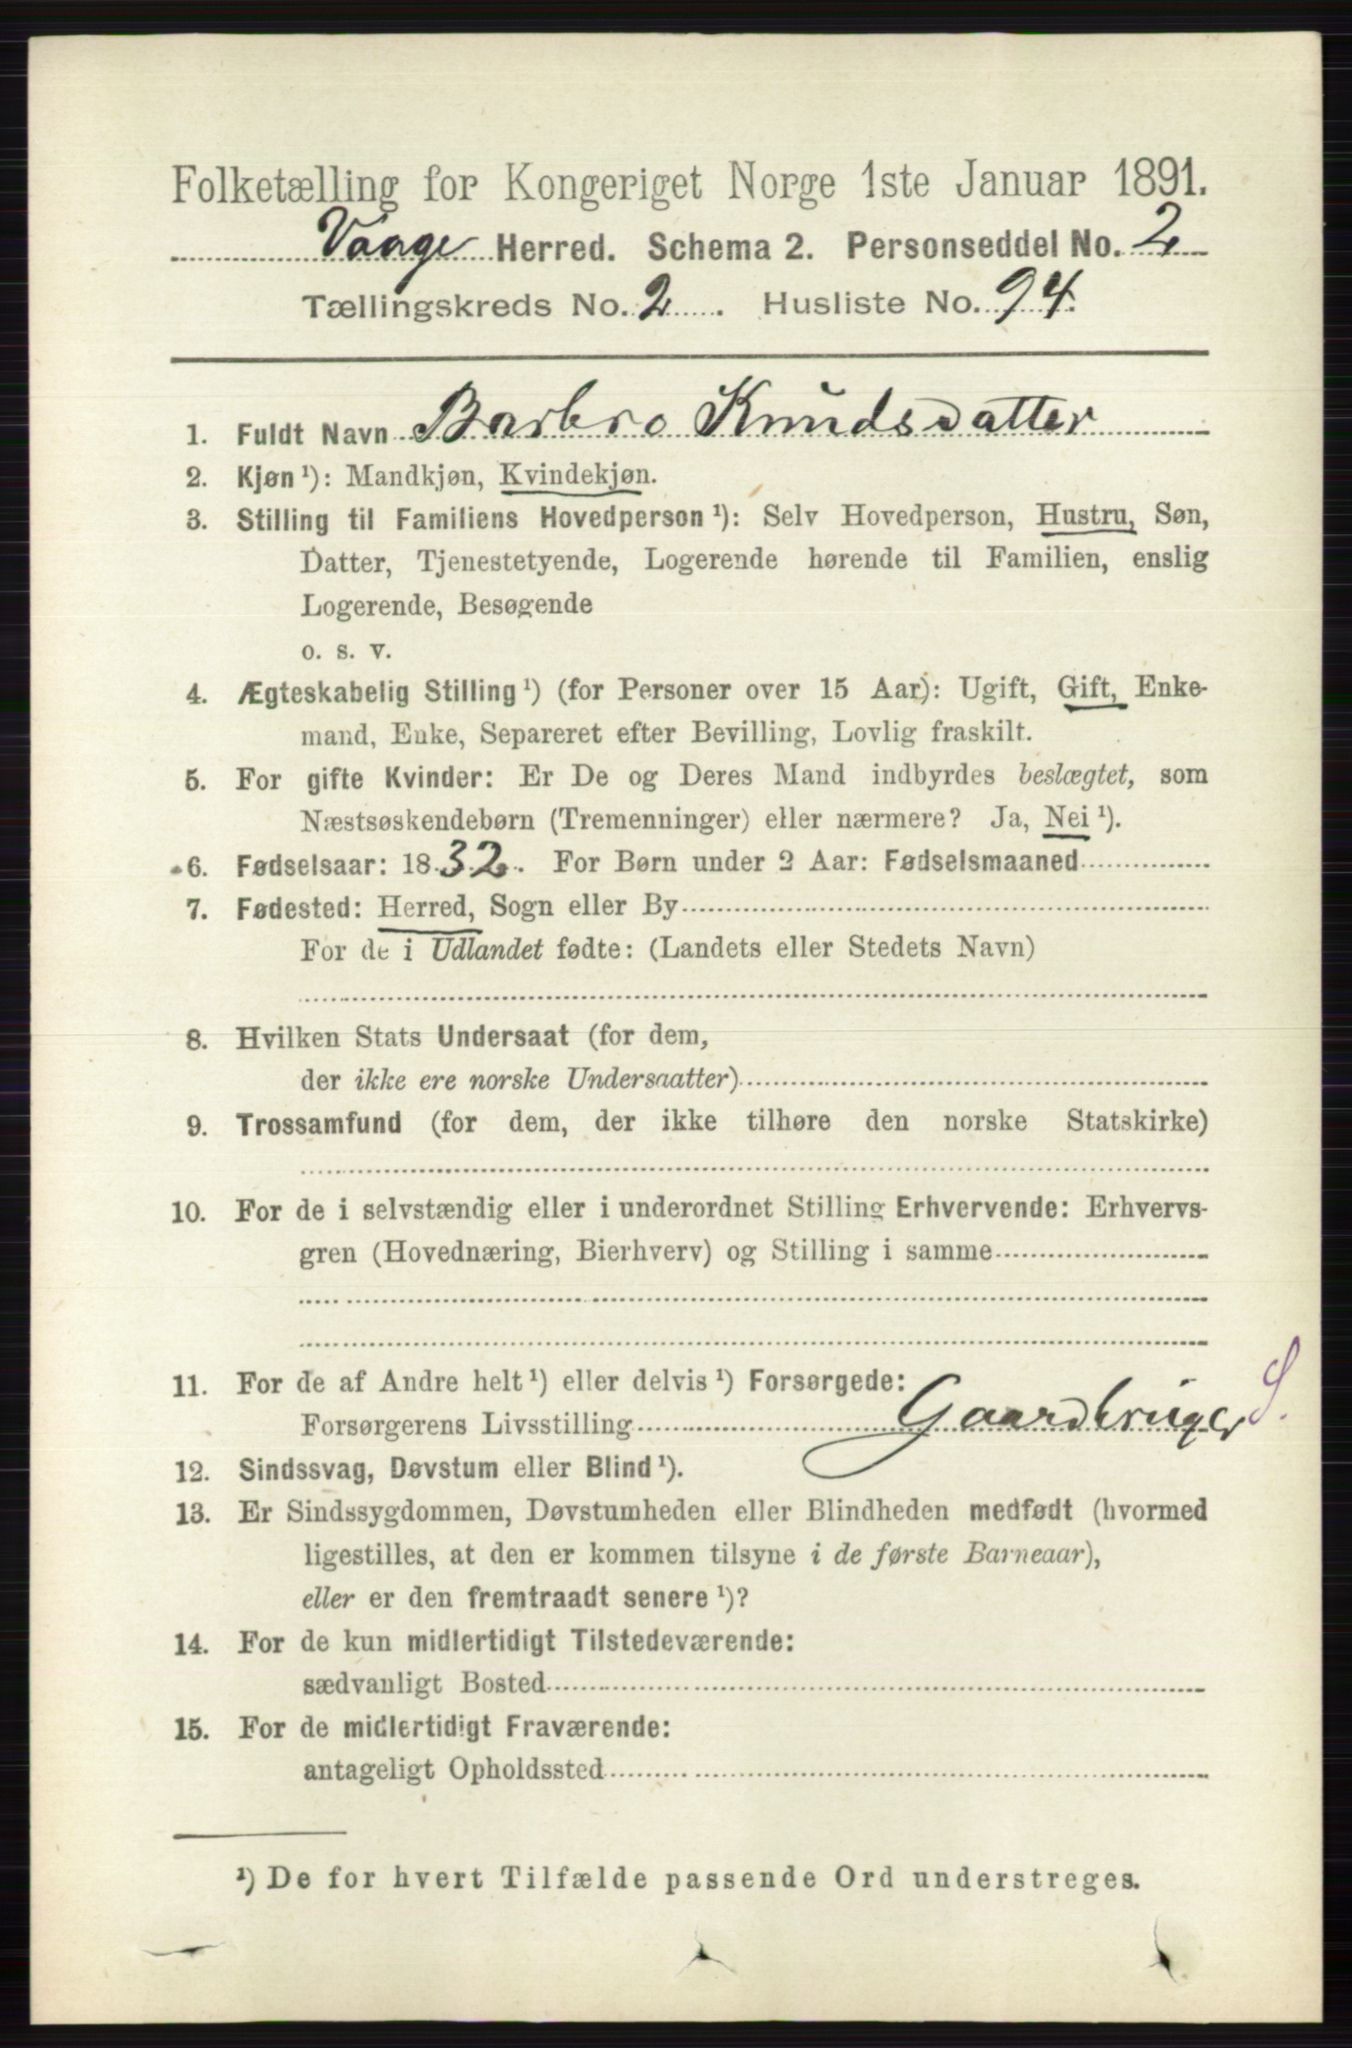 Folketælling for Kongeriget Norge 1ste Januar 1891.
Vaage Herred. Schema 2. Personseddel No. 2
Tællingskreds No. 2. Husliste No. 94.
1. Fuldt Navn Barbro Knudsdatter
2. Kjøn ¹): Mandkjøn, Kvindekjøn.
3. Stilling til Familiens Hovedperson ¹): Selv Hovedperson, Hustru, Søn,
Datter, Tjenestetyende, Logerende hørende til Familien, enslig
Logerende, Besøgende
o. s. v.
4. Ægteskabelig Stilling ¹) (for Personer over 15 Aar): Ugift, Gift, Enke-
mand, Enke, Separeret efter Bevilling, Lovlig fraskilt.
5. For gifte Kvinder: Er De og Deres Mand indbyrdes beslægtet, som
Næstsøskendebørn (Tremenninger) eller nærmere? Ja, Nei ¹).
6. Fødselsaar: 1832. For Børn under 2 Aar: Fødselsmaaned
7. Fødested: Herred, Sogn eller By
For de i Udlandet fødte: (Landets eller Stedets Navn)
8. Hvilken Stats Undersaat (for dem,
der ikke ere norske Undersaatter)
9. Trossamfund (for dem, der ikke tilhøre den norske Statskirke)
10. For de i selvstændig eller i underordnet Stilling Erhvervende: Erhvervs-
gren (Hovednæring, Bierhverv) og Stilling i samme
11. For de af Andre helt ¹) eller delvis ¹) Forsørgede:
Forsørgerens Livsstilling Gaardbruger S.
12. Sindssvag, Døvstum eller Blind ¹).
13. Er Sindssygdommen, Døvstumheden eller Blindheden medfødt (hvormed
ligestilles, at den er kommen tilsyne i de første Barneaar),
eller er den fremtraadt senere ¹)?
14. For de kun midlertidigt Tilstedeværende:
sædvanligt Bosted
15. For de midlertidigt Fraværende:
antageligt Opholdssted
¹) De for hvert Tilfælde passende Ord understreges.